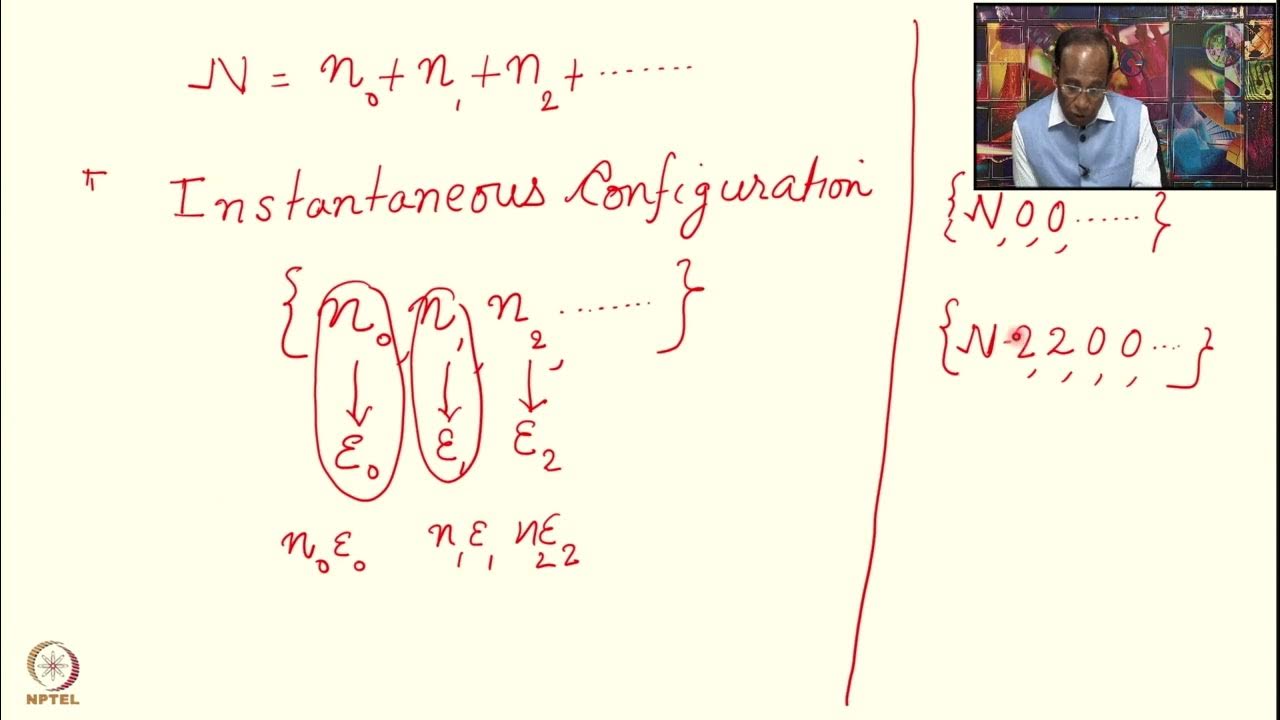 N = n₀ + n₁ + n₂ + .......
Instantaneous Configuration
{ n₀, n₁, n₂, ....... }
↓ ↓ ↓
ε₀ ε₁ ε₂
n₀ε₀ n₁ε₁ n₂ε₂
{N, 0, 0, ......}
{N-2, 2, 0, 0, ...}
NPTEL